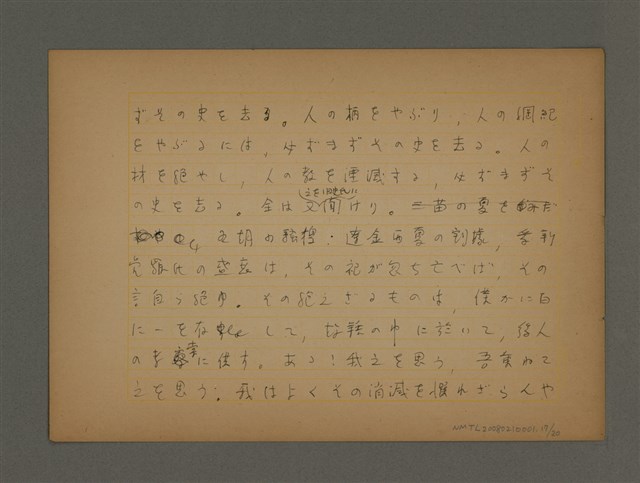 ずその史を去る。人の枋をやぶり、人の綱紀
をやぶるには、必ずまずその史を去る。人の
材を絶やし、人の教を湮滅する、必ずまずそ
の史を去る。余は
之を旧史に
文聞けり。三苗の夏を
五胡の・遼金西夏の割據、
の盛衰は、その祀が忽ち亡べば、その
言自ら絶ゆ。その絶えざるものは、僅かに百
に一を存して、故籍の中に於いて、後人
の考索に供す。ああ!我之を思う、吾重ねて
之を思う。我はよくその消滅を懼れざらんや
NMTL20080210001.19/20